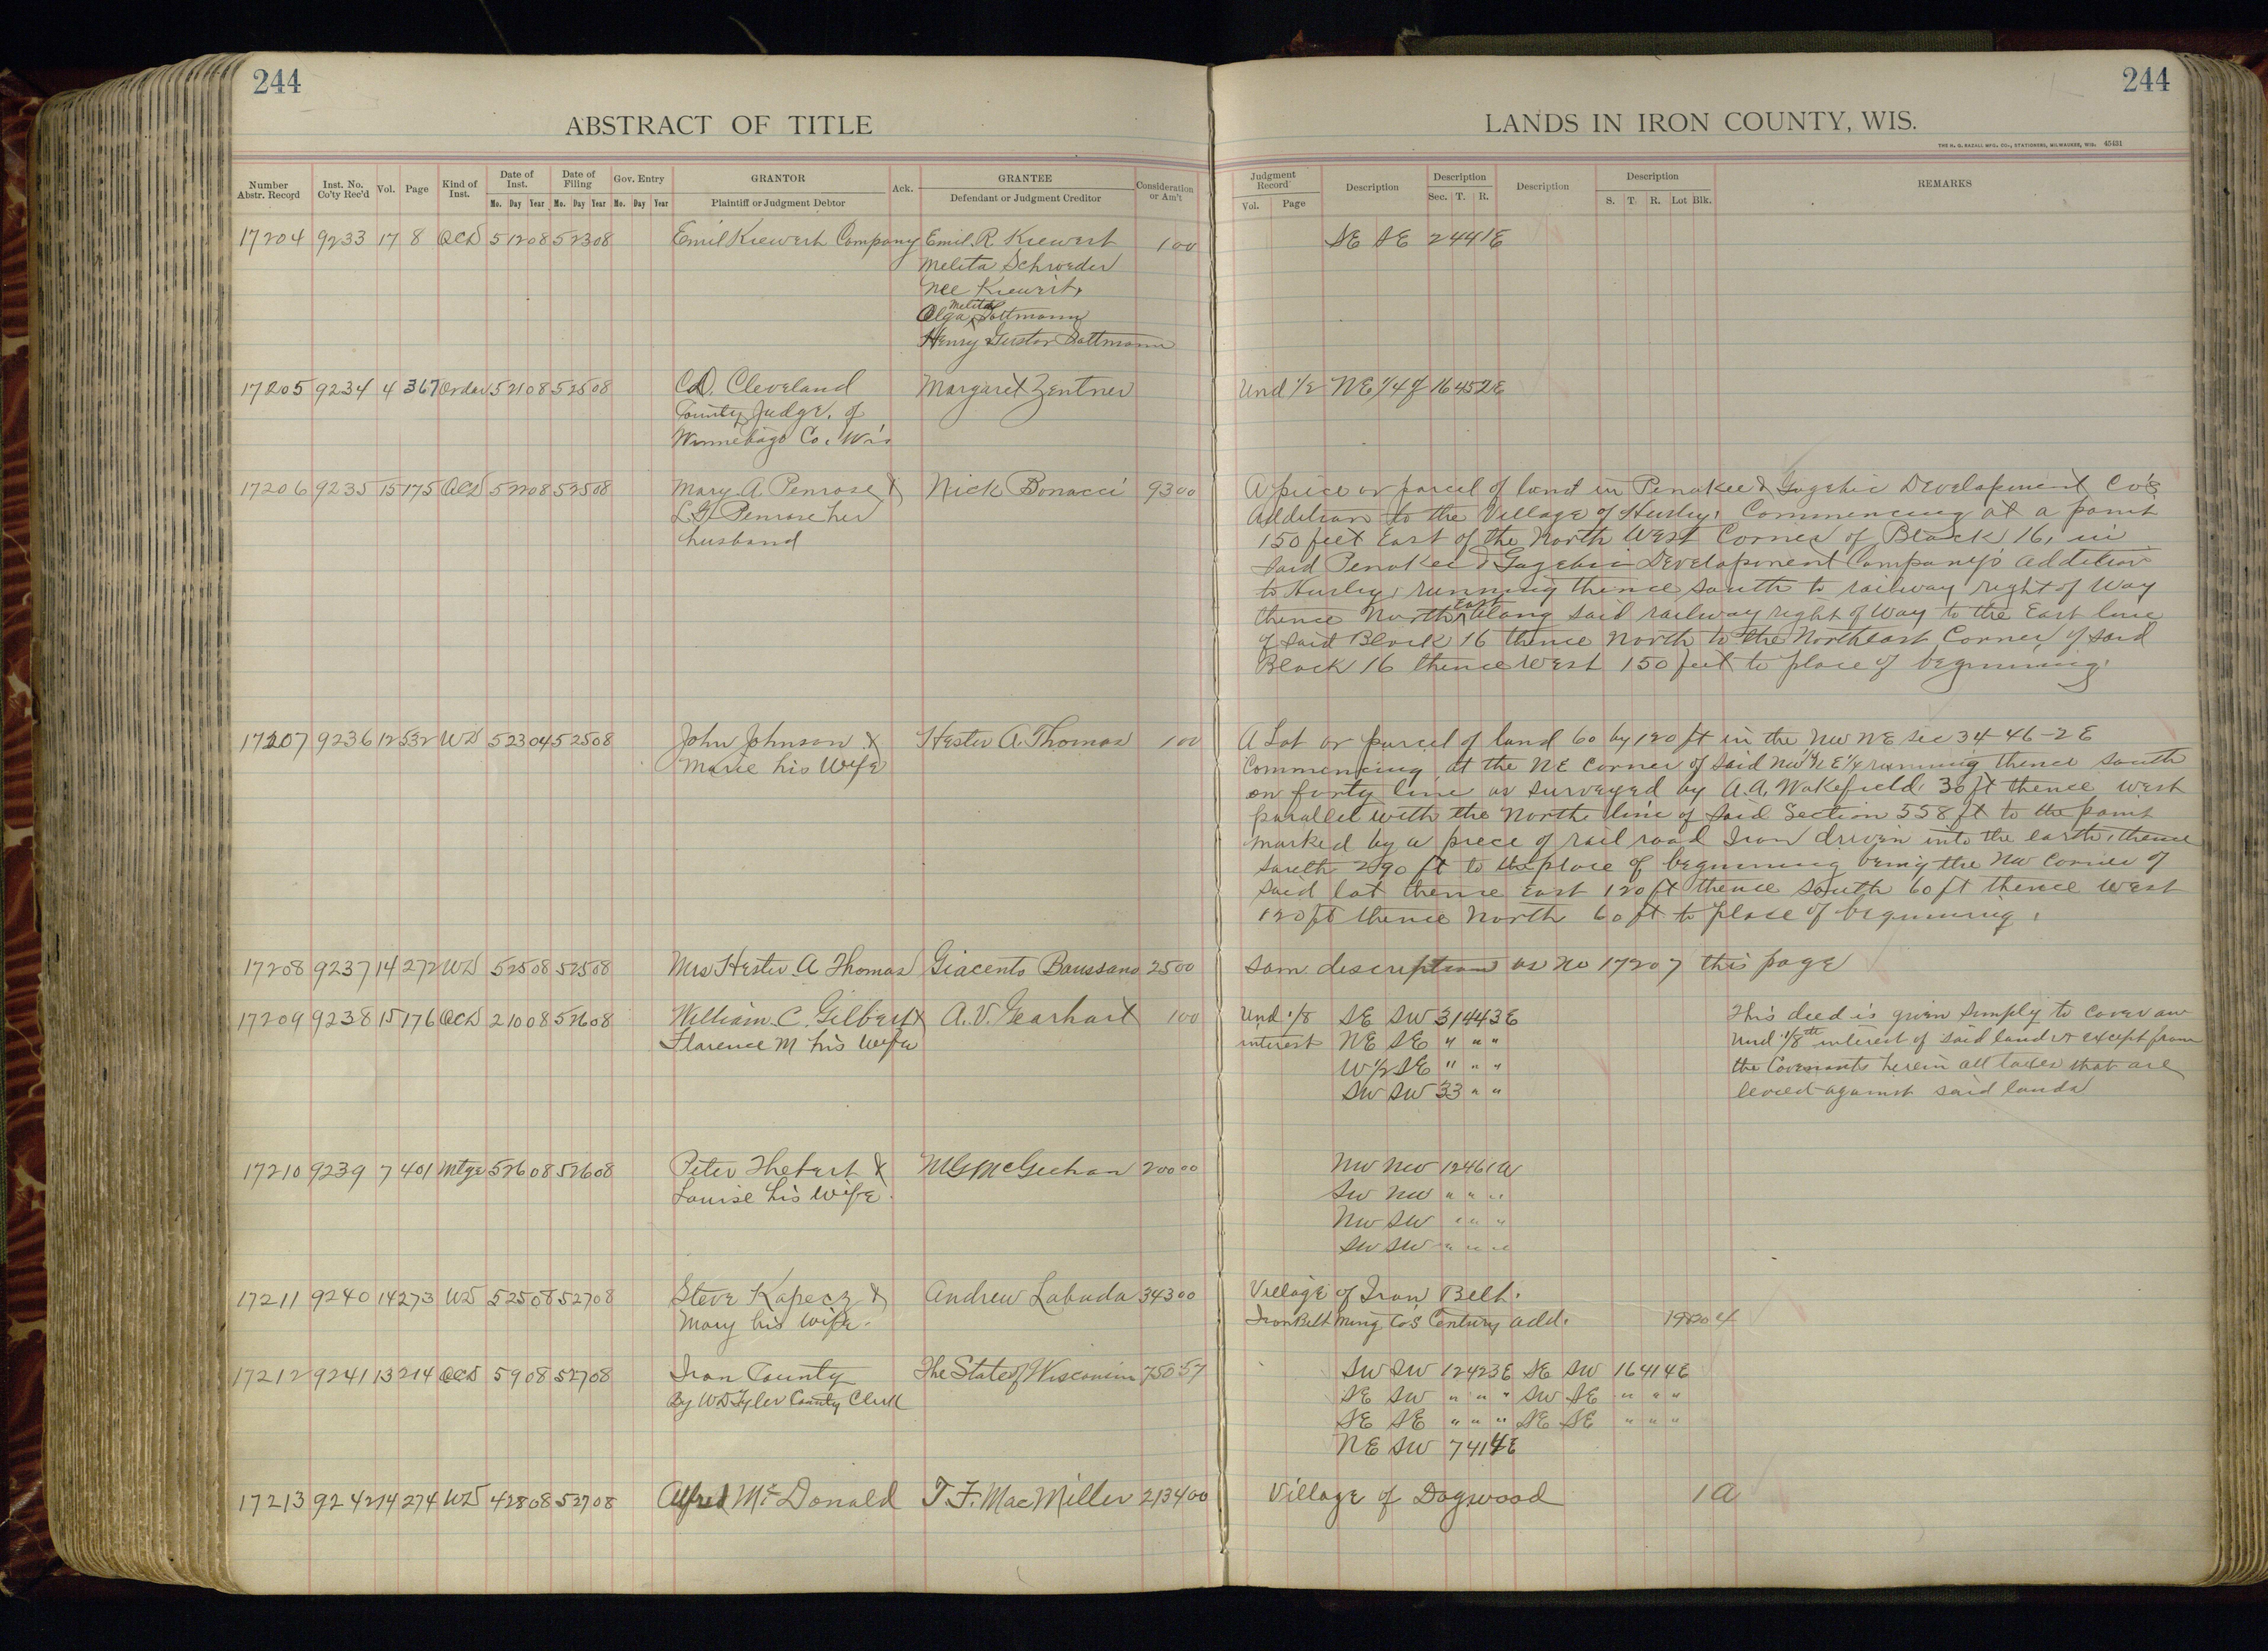 244
244
ABSTRACT OF TITLE
LANDS IN IRON COUNTY, WIS.
THE H. G. RAZALL MFG. CO., STATIONERS, MILWAUKEE, WIS. 45431
Number Abstr. Record Inst. No. Co'ty Rec'd Vol. Page Kind of Inst. Date of Inst. Mo. Day Year Date of Filing Mo. Day Year Gov. Entry Mo. Day Year GRANTOR Plaintiff or Judgment Debtor Ack. GRANTEE Defendant or Judgment Creditor Consideration or Am't
Judgment Record Vol. Page Description Description Sec. T. R. Description Description S. T. R. Lot Blk. REMARKS
17204 9233 17 8 QCD 5 12 08 5 23 08 Emil Kiewert Company Emil R. Kiewert 1 00 SE SE 24 41 E
Melita Schroeder
nee Kiewert,
Olga Melita Sattmann
Henry Gustav Sattmann
17205 9234 4 367 Order 5 21 08 5 25 08 C.D. Cleveland Margaret Zentner Und 1/2 NE 1/4 of 16 45 2E
County Judge, of
Winnebago Co. Wis
17206 9235 15 175 QCD 5 22 08 5 25 08 Mary A. Penrose & Nick Bonacci 93 00 A piece or parcel of land in Penokee & Gogebic Development Co's
L.G. Penrose her Addition to the Village of Hurley, Commencing at a point
husband 150 feet East of the North West Corner of Block 16, in
said Penokee & Gogebic Development Company's Addition
to Hurley, running thence South to railway right of Way
thence North East along said railway right of Way to the East line
of said Block 16 thence North to the Northeast Corner of said
Block 16 thence West 150 feet to place of beginning.
17207 9236 12 532 WD 5 23 04 5 25 08 John Johnson & Hester A. Thomas 1 00 A Lot or parcel of land 60 by 120 ft in the NW NE Sec 34-46-2E
Marie his Wife Commencing at the NE Corner of said NW 1/4 NE 1/4 running thence south
on forty line as surveyed by A.A. Wakefield 30 ft thence west
parallel with the North line of said Section 558 ft to the point
marked by a piece of rail road Iron driven into the earth, thence
South 290 ft to the place of beginning being the NW Corner of
said lot thence East 120 ft thence South 60 ft thence West
120 ft thence North 60 ft to place of beginning.
17208 9237 14 272 WD 5 25 08 5 25 08 Mrs Hester A Thomas Giacento Baussano 25 00 Sam description as No 17207 this page
17209 9238 15 176 QCD 2 10 08 5 26 08 William C. Gilbert & A.V. Gearhart 1 00 Und 1/8 SE SW 31 44 3E This deed is given simply to cover an
Florence M his Wife interest NE SE " " " Und 1/8th interest of said land & except from
W 1/2 SE " " " the Covenants herein all taxes that are
SW SW 33 " " levied against said lands
17210 9239 7 401 Mtge 5 26 08 5 26 08 Peter Thebert & McGeehan 200 00 NW NW 12 46 1W
Louise his Wife. SW NW " " "
NW SW " " "
SW SW " " "
17211 9240 14 273 WD 5 25 08 5 27 08 Steve Kapecz & Andrew Labuda 343 00 Village of Iron Belt.
Mary his wife. Iron Belt Ming Co's Century add. 19 & 20 4
17212 9241 13 214 QCD 5 9 08 5 27 08 Iron County The State of Wisconsin 750 57 SW SW 12 42 3E SE SW 16 41 4E
By W.D. Tyler County Clerk SE SW " " " SW SE " " "
SE SE " " " SE SE " " "
NE SW 7 41 4E
17213 9242 14 274 WD 4 28 08 5 27 08 Alfred McDonald T.F. MacMiller 2134 00 Village of Dogwood 1 A